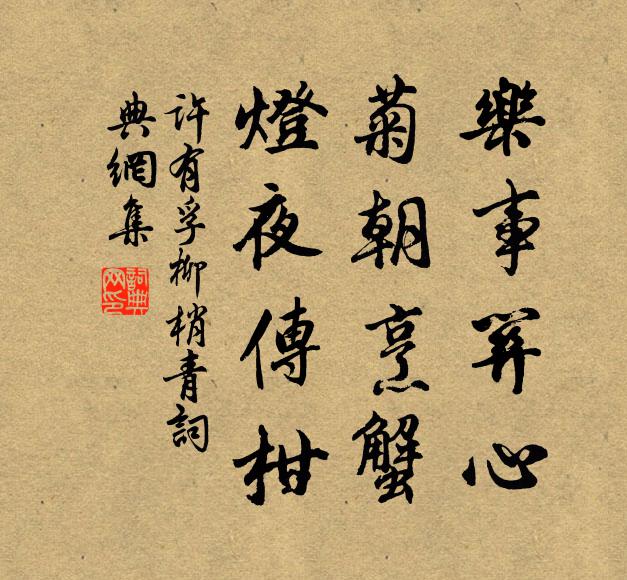 樂事關心
菊朝烹蟹
燈夜傳柑
許有孚柳梢青詞
典網集
詞典
网印